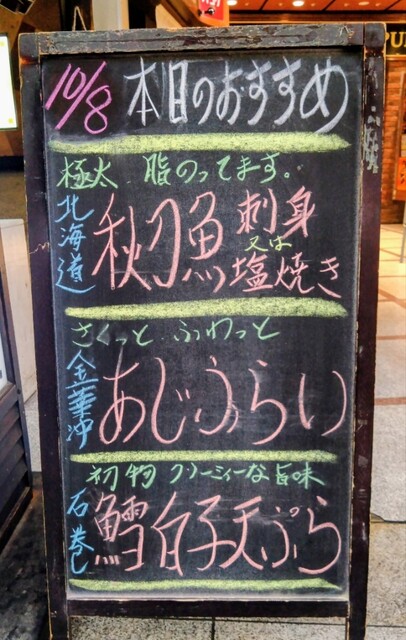 10/8 本日のおすすめ
極太 脂のってます。
北海道
秋刀魚 刺身
又は
塩焼き
さくっと ふわっと
金華沖
あじふらい
初物 クリーミィーな旨味
石巻し
鱈白子天ぷら
PU